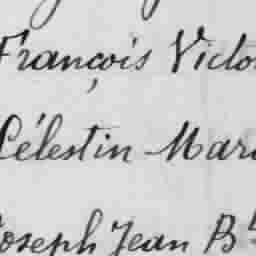 François Victo
Célestin Mari
Joseph Jean Bt